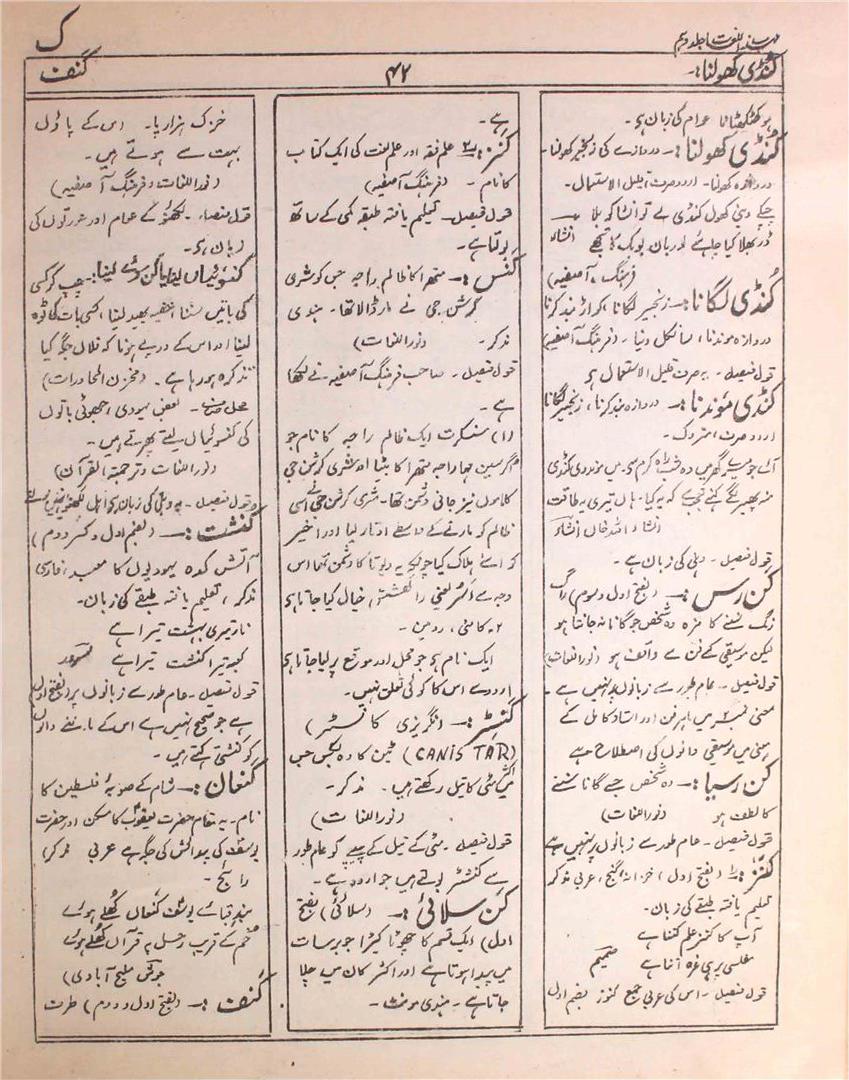 مہذب اللغات جلد دہم
ک
کنڈی کھولنا:۔
۴۲
کنف
ہو کھٹکھٹانا عوام کی زبان ہے۔
کُنڈی کھولنا:۔ دروازے کی زنجیر کھولنا۔
دروازہ کھولنا۔ اردو صرف قلیل الاستعمال۔
چپکے
کھول کنڈی بے تو انشا کو بلا
انشاء
(فرہنگ آصفیہ)
کُنڈی لگانا:۔ زنجیر لگانا، کواڑ بند کرنا
دروازہ موندنا، سانکل دینا۔ (فرہنگ آصفیہ)
قول فیصل۔ یہ صرف قلیل الاستعمال ہے
کنڈی موندنا:۔ دروازہ بند کرنا، زنجیر لگانا
اردو صرف، متروک۔
انشاء اللہ خاں انشا
قول فیصل۔ دہلی کی زبان ہے۔
کن رس:۔ (بفتح اول و سوم) راگ
رنگ سننے کا مزہ وہ شخص جو گانا نہ جانتا ہو
لیکن موسیقی کے فن سے واقف ہو (نور اللغات)
قول فیصل۔ عام طور سے زبانوں پر نہیں ہے۔
معنی نمبر ۲ میں ماہر فن اور استاد کامل کے
معنی میں موسیقی دانوں کی اصطلاح ہے
کن رسیا:۔ وہ شخص جسے گانا سننے
کا لطف ہو (نور اللغات)
قول فیصل۔ عام طور سے زبانوں پر نہیں ہے
کنز:۔ ۱ (بفتح اول) خزانہ، گنج، عربی مذکر
تعلیم یافتہ طبقے کی زبان۔
آپ کا کنز علم کتنا ہے
مفلسی پر ہی غرہ اتنا ہے
قول فیصل۔ اس کی عربی جمع کنوز بضم اول
ہے۔
کنز:۔ ۲ علم فقہ اور علم لغت کی ایک کتاب
کا نام۔ (فرہنگ آصفیہ)
قول فیصل۔ تعلیم یافتہ طبقہ کمی کے ساتھ
بولتا ہے۔
کنس:۔ متھرا کا ظالم راجہ جس کو شری
کرشن جی نے مار ڈالا تھا۔ ہندی
مذکر۔ (نور اللغات)
قول فیصل۔ صاحب فرہنگ آصفیہ نے لکھا
ہے۔
(۱) سنسکرت ایک ظالم راجہ کا نام جو
اگرسین مہاراجہ متھرا کا بیٹا اور شری کرشن جی
کا ماموں نیز جانی دشمن تھا۔ شری کرشن جی نے اسی
ظالم کو مارنے کے واسطے اوتار لیا اور اخیر
کو اسے ہلاک کیا چونکہ یہ دیوتا کا دشمن تھا اس
وجہ سے اسُر یعنی راکھشس خیال کیا جاتا ہے
۲۔ کانسی، رومین۔
ایک نام ہے جو محل اور موقع پر لیا جاتا ہے
اردو سے اس کا کوئی تعلق نہیں۔
کنسٹر:۔ انگریزی کانسٹر)
(CANISTAR) ٹین کا وہ بکس جس
میں مٹی کا تیل رکھتے ہیں۔ مذکر۔
(نور اللغات)
قول فیصل۔ مٹی کے تیل کے پیپے کو عام طور
سے کنسٹر بولتے ہیں جو اردو ہے۔
کن سلائی:۔ (سلائی) بفتح
اول) ایک قسم کا چھوٹا کیڑا جو برسات
میں پیدا ہوتا ہے اور اکثر کان میں چلا
جاتا ہے۔ ہندی مونث۔
خزک ہزار پا۔ اس کے پاؤں
بہت سے ہوتے ہیں۔
(نور اللغات و فرہنگ آصفیہ)
قول فیصل۔ لکھنؤ کے عوام اور عورتوں کی
زبان ہے۔
کنسوئیاں لینا یا کن سوئے لینا:۔ چھپ کر کسی
کی باتیں سننا، خفیہ بھید لینا، کسی بات کی ٹوہ
لینا اور اس کے درپے ہونا کہ فلاں جگہ کیا
تذکرہ ہو رہا ہے۔ (مخزن المحاورات)
محل صرف۔ بعض یہودی، جھوٹی باتوں
کی کنسوئیاں لیتے پھرتے ہیں۔
(نور اللغات و ترجمۃ القرآن)
قول فیصل۔ یہ دہلی کی زبان ہے اہل لکھنؤ نہیں بولتے
کنشت:۔ (بضم اول و کسر دوم)
آتش کدہ یہودیوں کا معبد، فارسی
مذکر، تعلیم یافتہ طبقے کی زبان۔
نار تیری بہشت تیرا ہے
کعبہ تیرا کنشت تیرا ہے
قول فیصل۔ عام طور سے زبانوں پر (بفتح اول)
ہے جو صحیح نہیں ہے اس کے ماننے والوں
کو کنشتی کہتے ہیں۔
کنعان:۔ شام کے صوبہ فلسطین کا
نام۔ یہ مقام حضرت یعقوبؑ کا مسکن اور حضرت
یوسفؑ کی پیدائش کی جگہ ہے عربی مذکر)
رائج۔
بند قبائے یوسف کنعاں کھلے ہوئے
خم کے قریب رحل پہ قرآں کھلے ہوئے
جوش ملیح آبادی)
کنف:۔ (بفتح اول و دوم) طرف